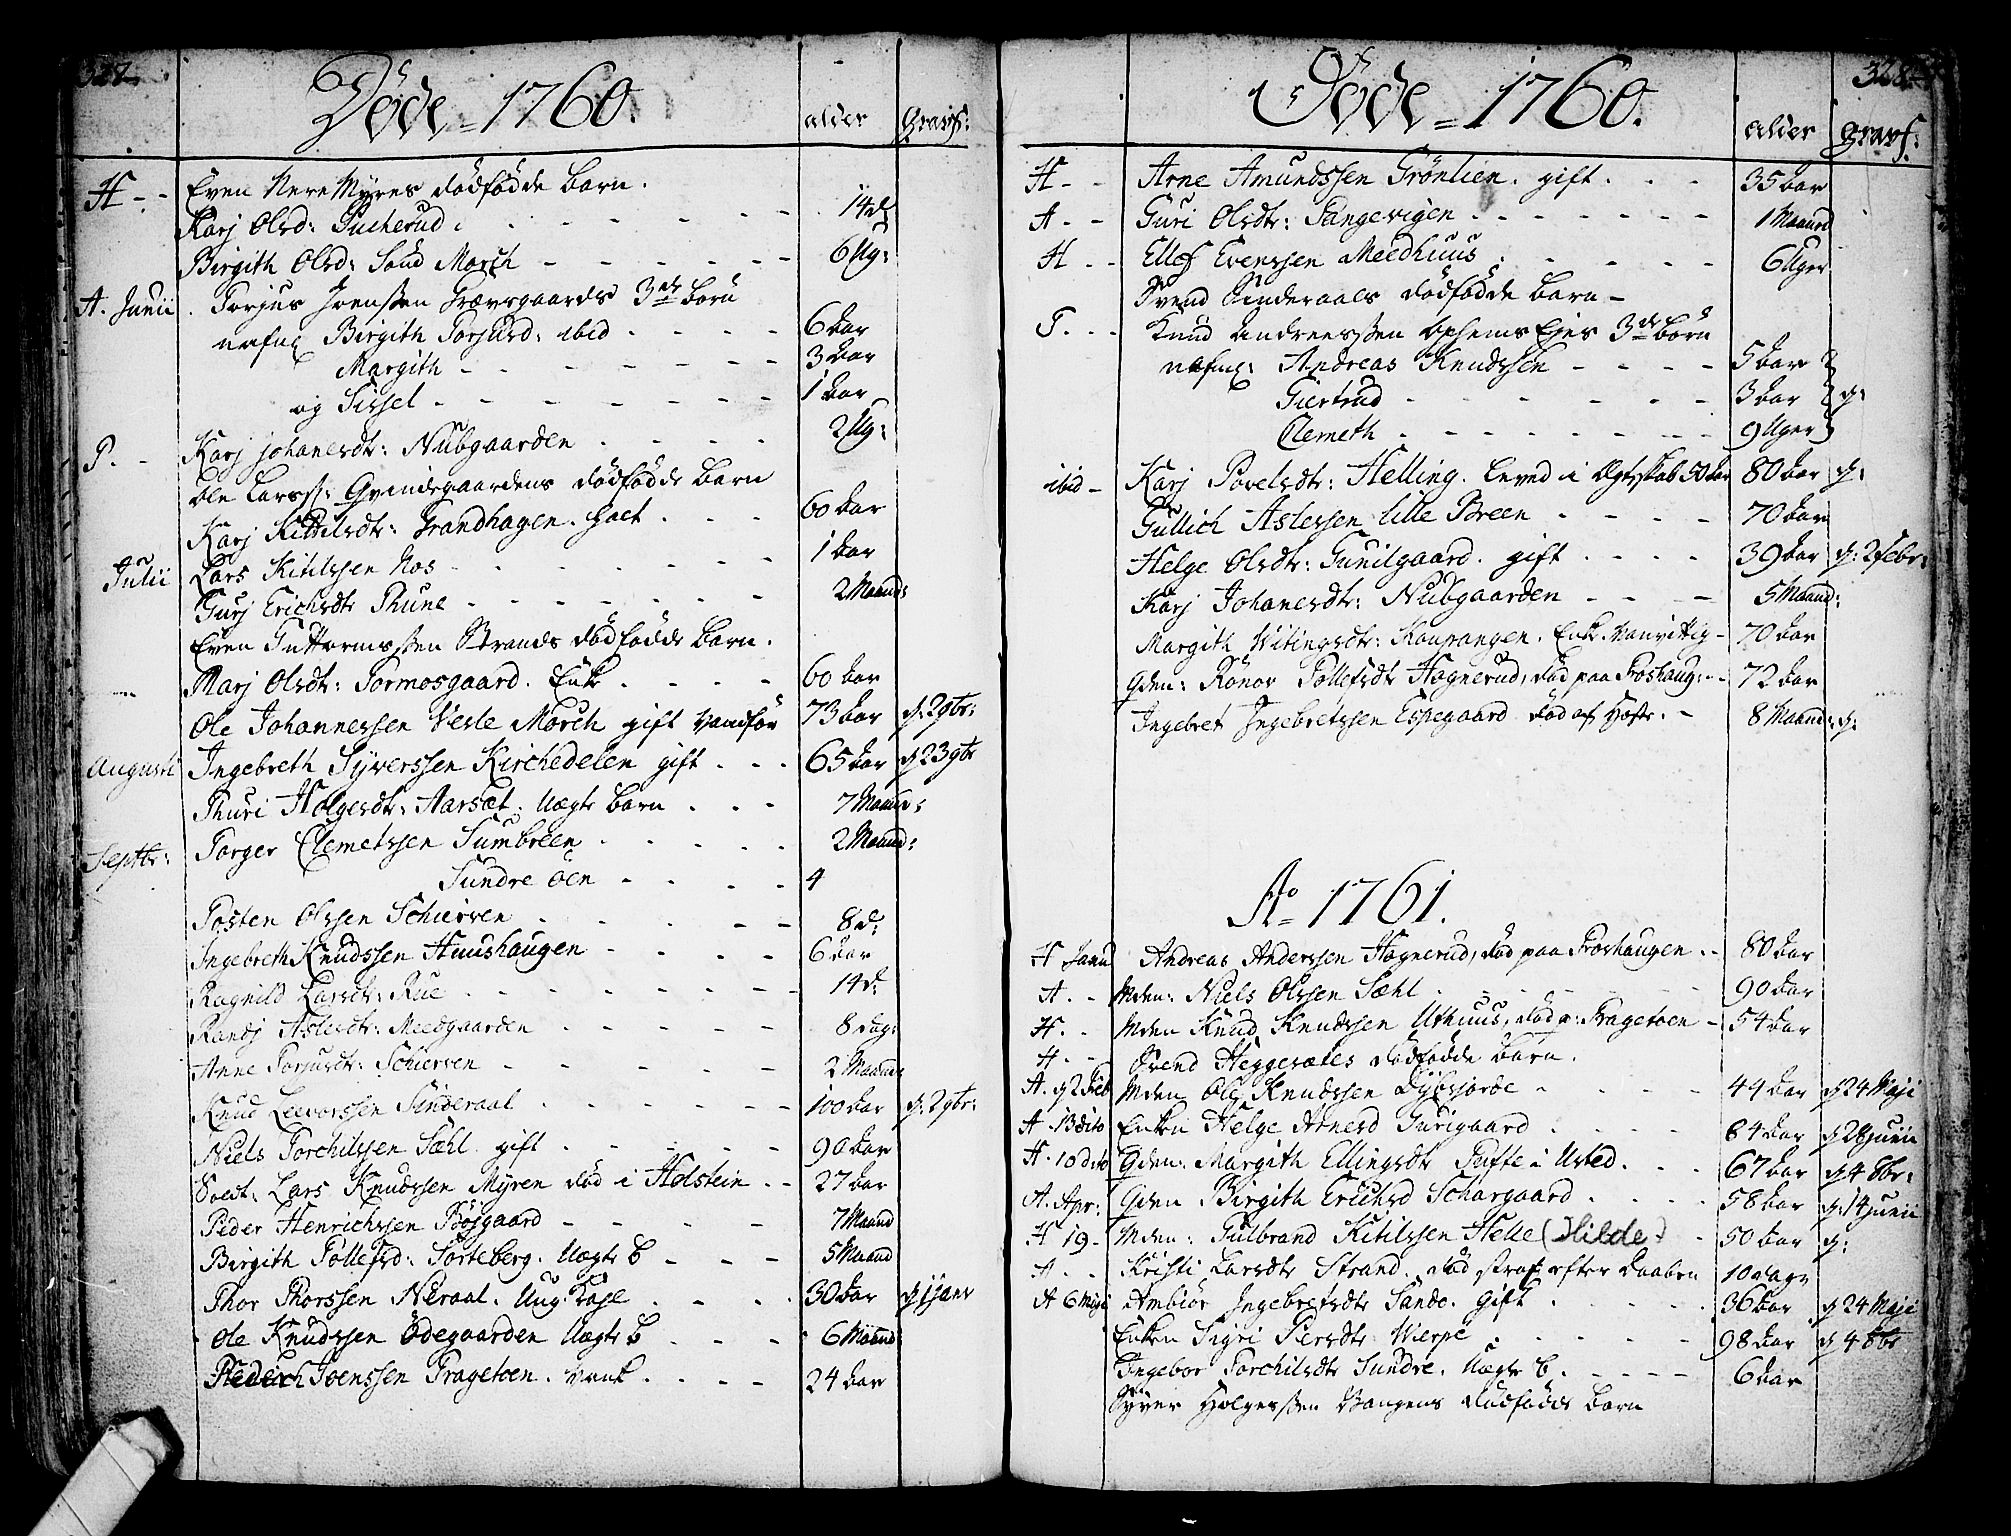 327
Döde = 1760.
alder
Gravf:
H - - Even Nere Myres dödfödde barn.
Karj Olsd: Tucherud . 14 d
Birgith Olsd: Sönd Morch - - - 6 Ug:
A. Junii Torjus Joenssen Grævsgaards 3de börn
nafnl Birgith Torjusd: ibid . . . . 6 Aar
Margith - - - - 3 Aar
og Sissel - - - - 1 Aar
T. - Karj Johanesdtr: Nubgaarden . . . . 2 Ug:
Ole Larss: Qvindegaardens dödfödde barn
Karj Kittilsdtr: Grandhagen. . . . 60 Aar
Julii Lars Kitilssen Nos - - - - 1 Aar
Gurj Erichsdtr Thune - - - - 2 Maand:
Even Guttormssen Strands dödfödde barn.
Marj Olsdtr: Tormosgaard. Enke . . . . 60 Aar
Ole Johannessen Vesle Morch gift vanför 73 Aar p: 2 9br:
Augusti Ingebreth Syverssen Kirchedelen gift . . . 65 Aar p 23 9br
Thuri Holgersdtr: Aarset. Uægte barn . . . 7 Maand:
Septbr: Torger Clemetssen Sumbreen . . . . 2 Maand:
Sundre öen - - - - 4
Tosten Olssen Schierven . . . . 8 d:
Ingebreth Knudssen Huushaugen - - - - 6 Aar
Ragnild Larsdtr: Rue - - - - 14 d:
Randj Aslesdtr: Meedgaarden - - - - 8 dag:
Anne Torjusdtr: Schierven - - - - 2 Maand:
Knud Leevorssen Sinderaal - - - - 100 Aar p: 2 9br:
Niels Torchilssen Sæhl. gift . - - - - 90 Aar
Soldt: Lars Knudssen Myren död i Holstein - - 27 Aar
Peder Henrichssen Böjgaard - - - - 7 Maand
Birgith Tollefsd: Sorteberg. Uægte b - - - 5 Maand
Thor Thorssen Neraal. Ung Karl . . . . 30 Aar p 1 janv
Ole Knudssen Ödegaarden Uægte b - - - 6 Maand
Hederich Joenssen Tragetoen. . . . . 24 Aar
328
Döde = 1760.
alder
gravf:
H - - Arne Amundssen Grönlien. gift . . . 35 Aar
A - - Guri Olsdtr: Tangevigen - - - - 1 Maand
H - - Ellef Evenssen Meedhuus . - - - 6 Uger
Svend Sinderaals dödfödde barn -
T. - - Knud Andreassen Ophems Ejes 3de börn
nafnl: Andreas Knudssen - - - - 5 Aar
Giertrud - - - - 3 Aar p:
Clemeth - - - - 9 Uger
ibid - Karj Povelsdtr: Helling. Leved i Ægteskab 50 Aar 80 Aar p:
Gullich Aslessen lille Breen - - - - 70 Aar
Helge Olsdtr: Gunilgaard. gift . . . . 39 Aar p: 2 febr:
Karj Johanesdtr: Nubgaarden - - - 5 Maand:
Margith Witingsdtr: Kaupangen. Enke. vanvittig - 70 Aar
Qden: Rönor Tollefsdtr Hognerud, död paa Froshaug: - - 72 Aar
Ingebret Ingebretssen Espegaard död af Hoste. - 8 Maand: p:
Ao 1761.
H Janu Andreas Anderssen Hognerud, död paa Froshaugen . - 80 Aar
A. - Mden: Niels Olssen Sæhl . - - - 90 Aar
H. - Mden Knud Knudssen Uthuus, död p: Tragetoen - 54 Aar
H. - - Svend Heggesætes dödfödde barn.
A. p 2 Feb Mden Ole Knudssen Dybsjorde - - - - 44 Aar p 24 Maji
A. 13 dito Enken Helge Arnesd Gurigaard . . . . 84 Aar p 28 junii
H. 10 dito Qden: Margith Ellingsdtr Tufte i Usted. . . 67 Aar p 4 8br:
A. Apr: Qden Birgith Erichsd Schargaard . . . . 58 Aar p: 14 junii
H 19 - Mden: Gulbrand Kitilssen Helle (Hilde) - 50 Aar p:
A . - Kristi Larsdtr Strand. död strax efter daaben 10 dage
A 6 Maji Ambiör Ingebretsdtr Sando. gift . . . . 36 Aar p 24 Maji
Enken Sigri Persdtr: Vierpe . - - - 98 Aar p 4 8br
Ingebor Torchilsdtr Sundre. Uægte b. - - - - 6 Aar
Syver Holgerssen Bangens dödfödde barn